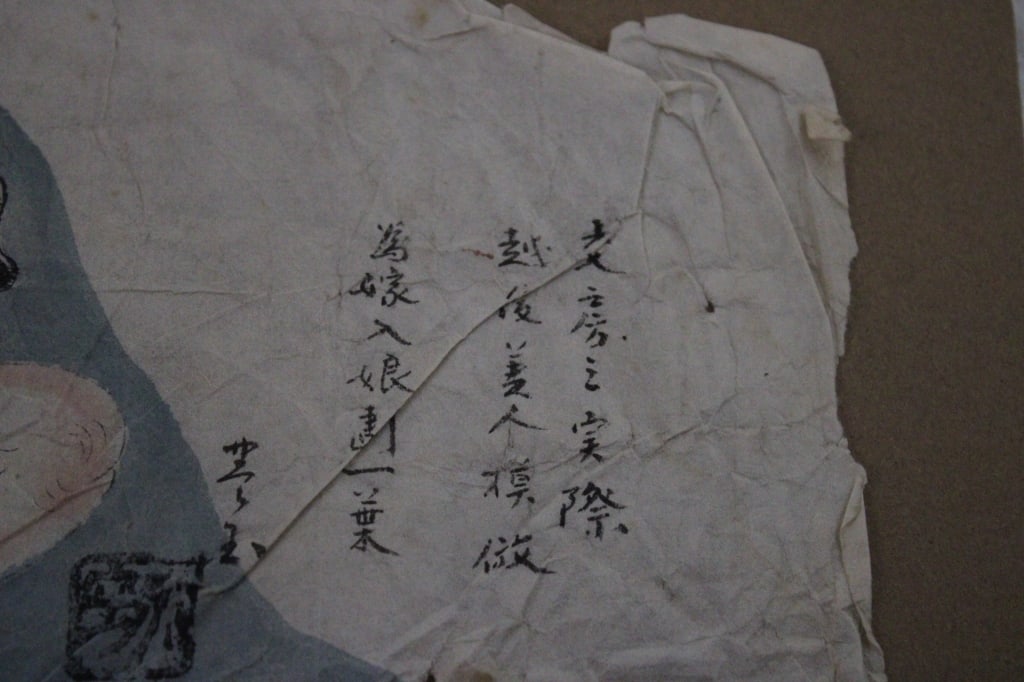 房之実際
越後美人模倣
為嫁入娘劃一葉
玉